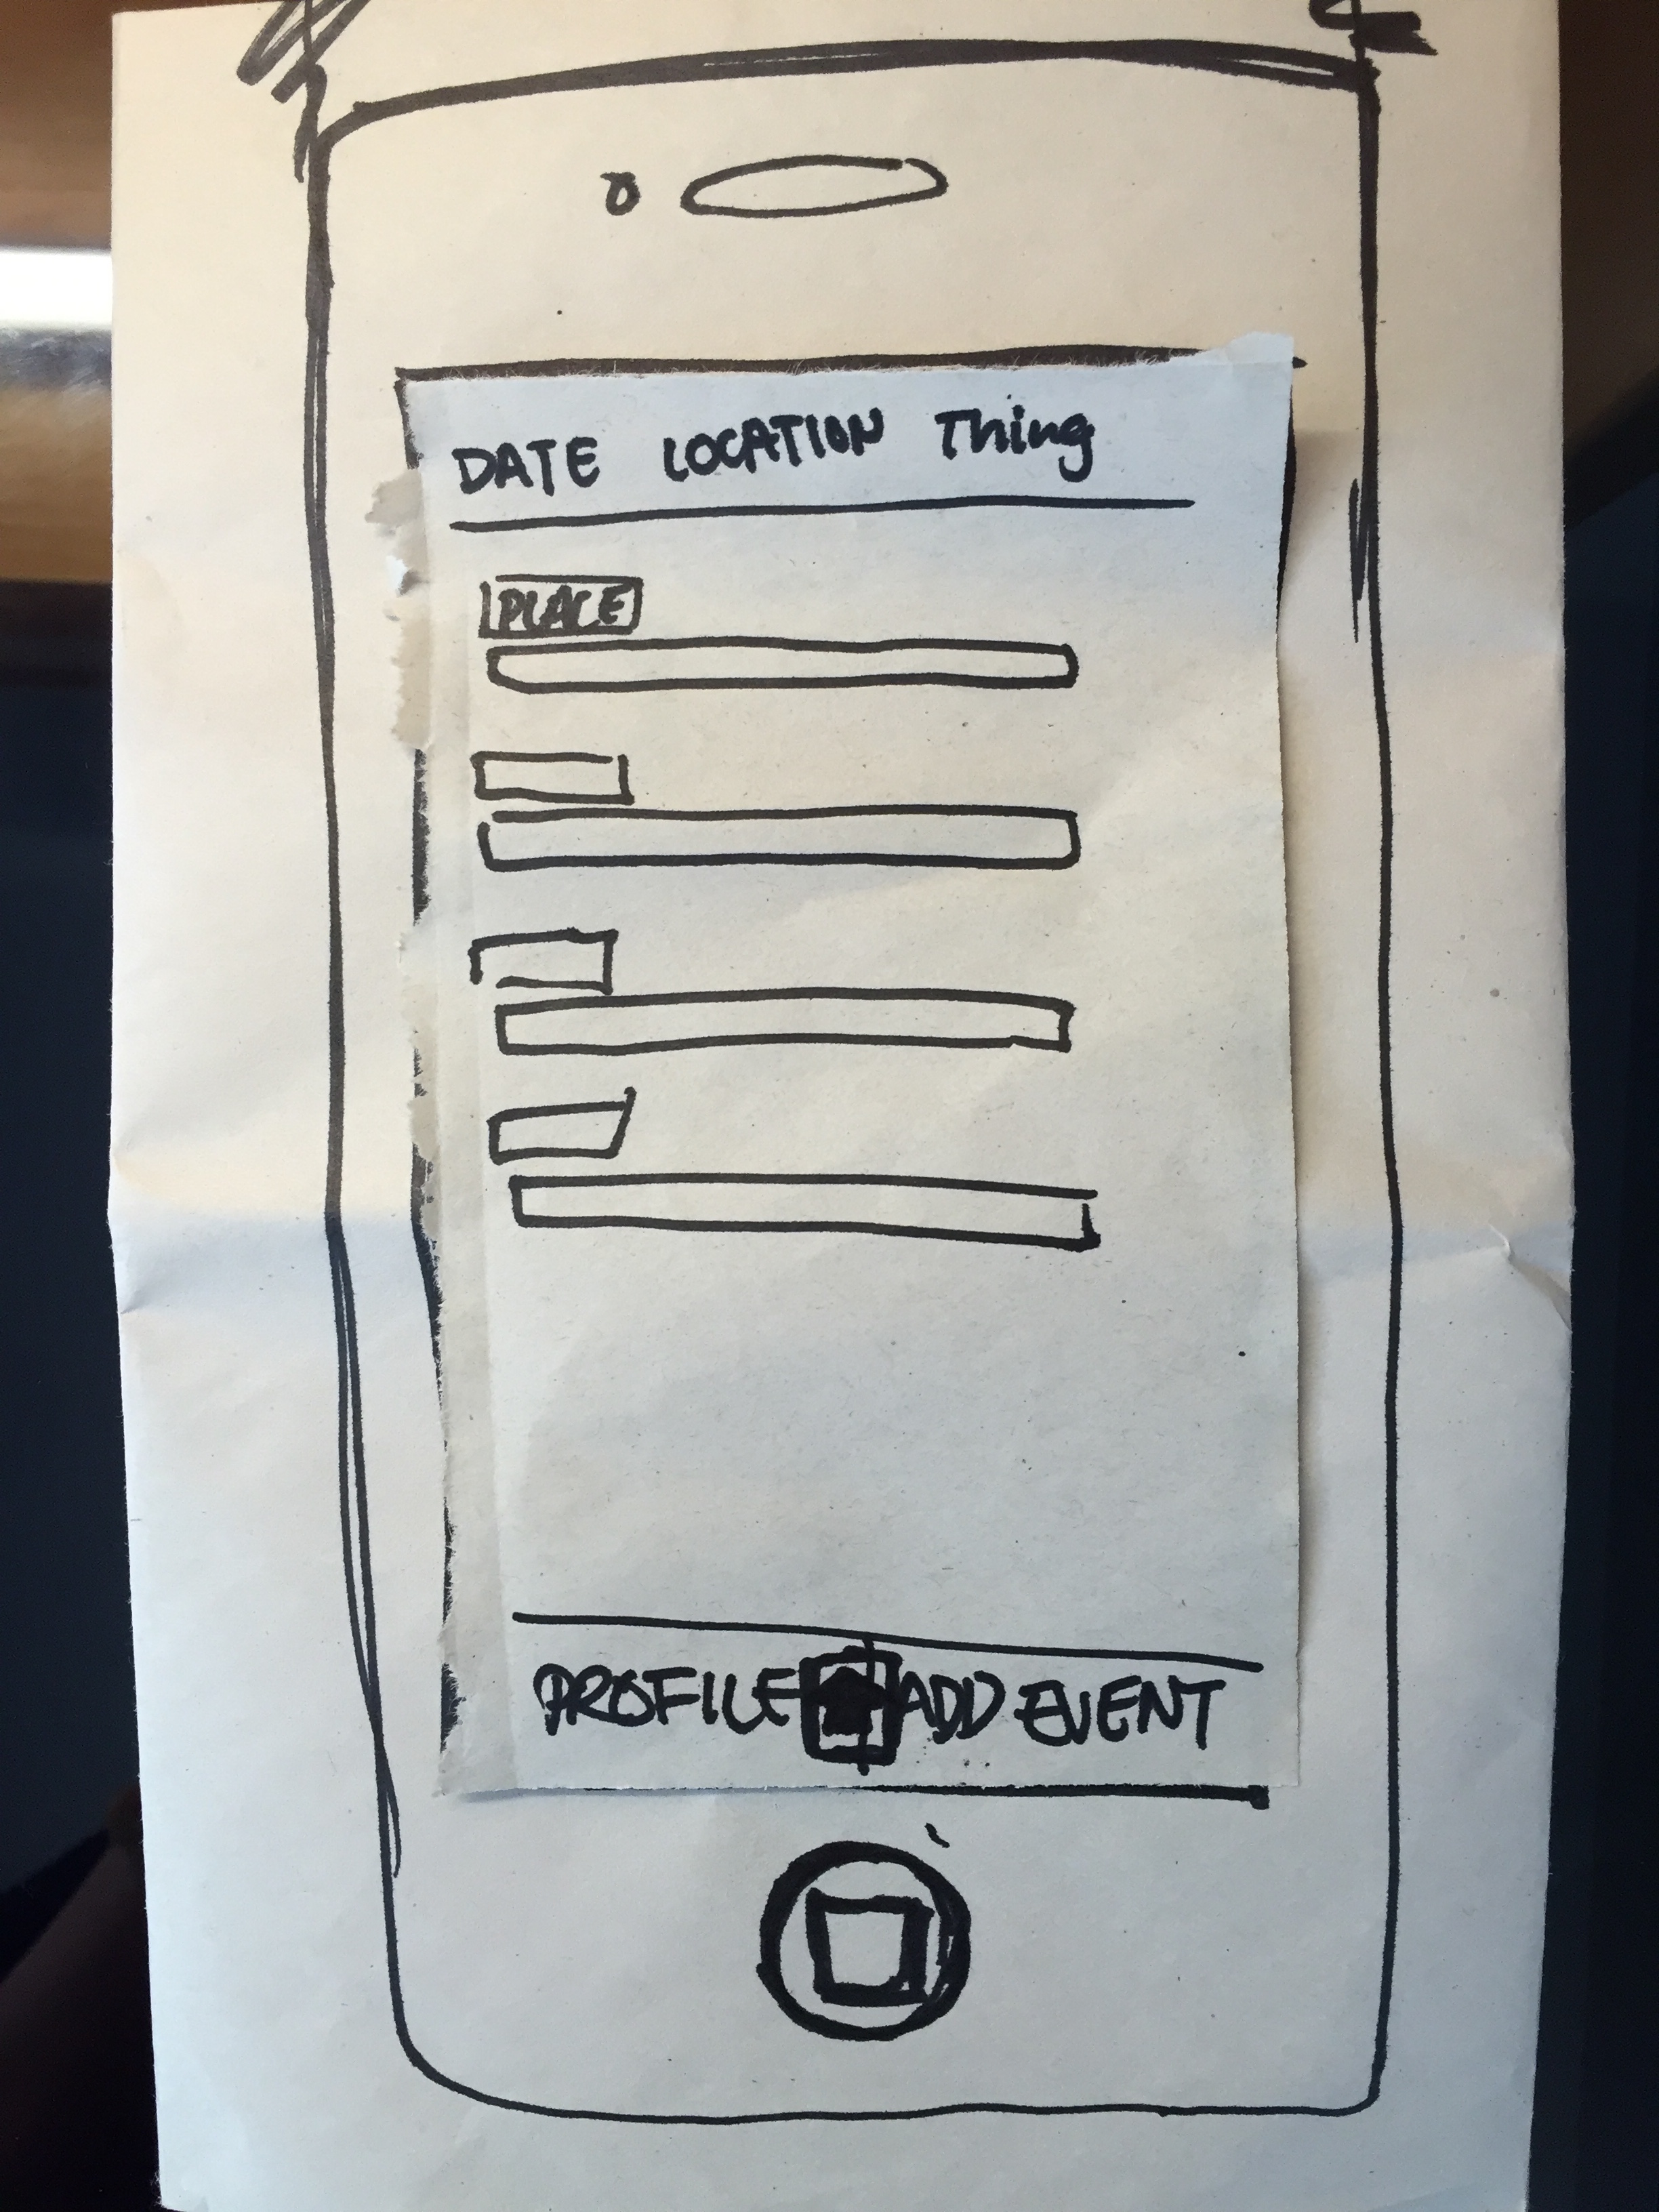 DATE LOCATION Thing
PLACE
PROFILE ADD EVENT